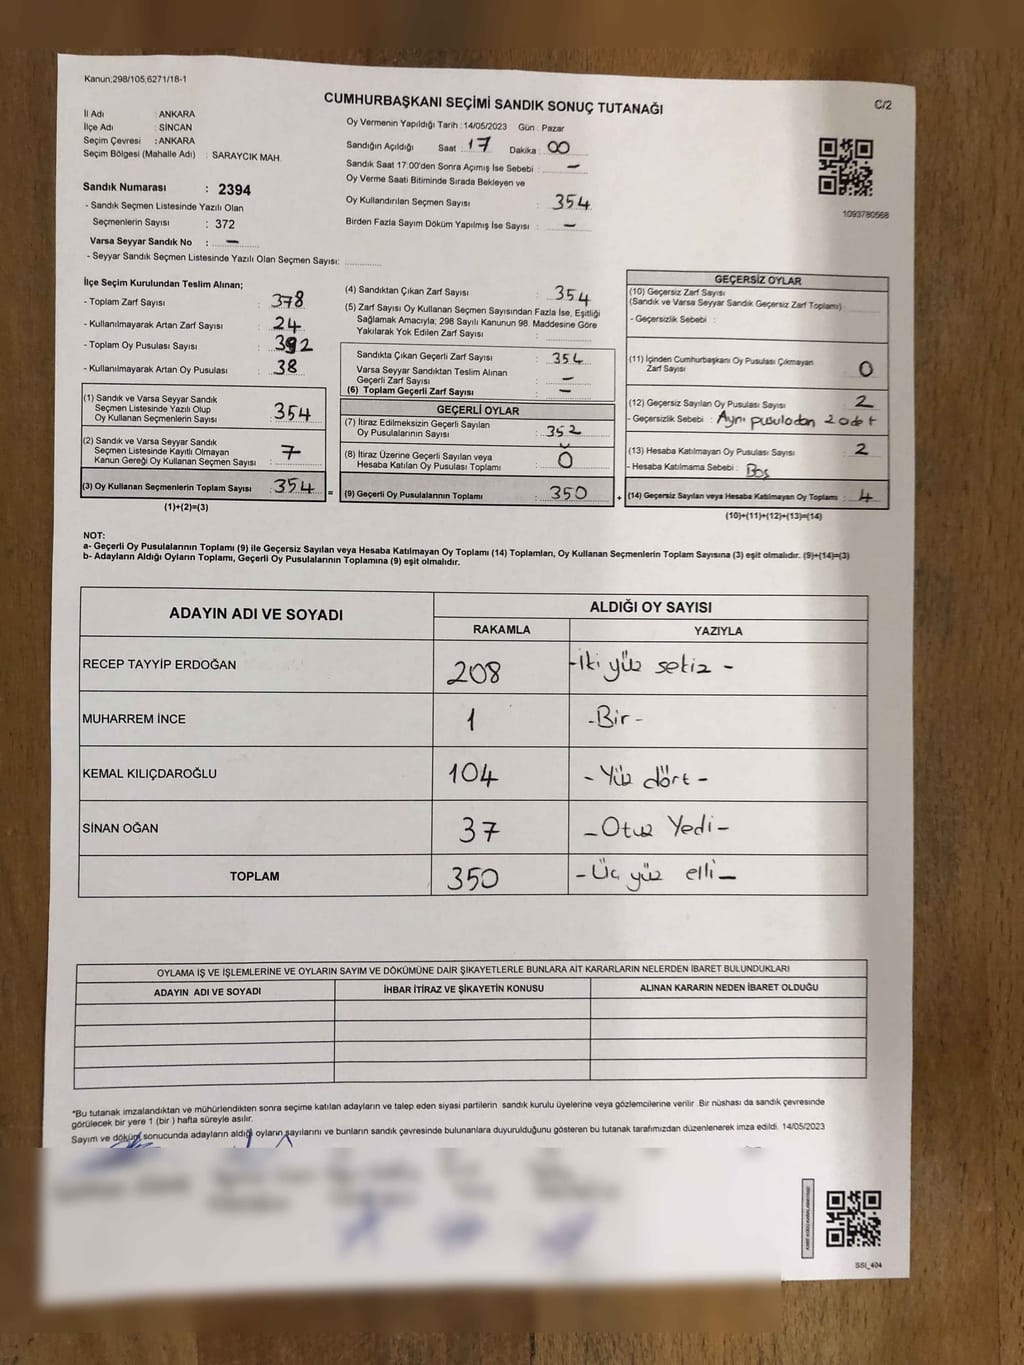 Kanun;298/105,6271/18-1
C/2
CUMHURBAŞKANI SEÇİMİ SANDIK SONUÇ TUTANAĞI
İl Adı : ANKARA
İlçe Adı : SİNCAN
Seçim Çevresi : ANKARA
Seçim Bölgesi (Mahalle Adı) : SARAYCIK MAH.
Sandık Numarası : 2394
- Sandık Seçmen Listesinde Yazılı Olan
Seçmenlerin Sayısı : 372
Varsa Seyyar Sandık No : —
- Seyyar Sandık Seçmen Listesinde Yazılı Olan Seçmen Sayısı:
Oy Vermenin Yapıldığı Tarih :14/05/2023 Gün : Pazar
Sandığın Açıldığı Saat : 17 Dakika : 00
Sandık Saat 17:00'den Sonra Açımış İse Sebebi : —
Oy Verme Saati Bitiminde Sırada Bekleyen ve
Oy Kullandırılan Seçmen Sayısı : 354
Birden Fazla Sayım Döküm Yapılmış İse Sayısı : —
1093780568
İlçe Seçim Kurulundan Teslim Alınan;
- Toplam Zarf Sayısı : 378
- Kullanılmayarak Artan Zarf Sayısı : 24
- Toplam Oy Pusulası Sayısı : 392
- Kullanılmayarak Artan Oy Pusulası : 38
(1) Sandık ve Varsa Seyyar Sandık
Seçmen Listesinde Yazılı Olup
Oy Kullanan Seçmenlerin Sayısı : 354
(2) Sandık ve Varsa Seyyar Sandık
Seçmen Listesinde Kayıtlı Olmayan
Kanun Gereği Oy Kullanan Seçmen Sayısı : 7
(3) Oy Kullanan Seçmenlerin Toplam Sayısı : 354 =
(1)+(2)=(3)
(4) Sandıktan Çıkan Zarf Sayısı : 354
(5) Zarf Sayısı Oy Kullanan Seçmen Sayısından Fazla İse, Eşitliği
Sağlamak Amacıyla; 298 Sayılı Kanunun 98. Maddesine Göre
Yakılarak Yok Edilen Zarf Sayısı :
Sandıkta Çıkan Geçerli Zarf Sayısı : 354
Varsa Seyyar Sandıktan Teslim Alınan
Geçerli Zarf Sayısı : —
(6) Toplam Geçerli Zarf Sayısı : —
GEÇERLİ OYLAR
(7) İtiraz Edilmeksizin Geçerli Sayılan
Oy Pusulalarının Sayısı : 352
(8) İtiraz Üzerine Geçerli Sayılan veya
Hesaba Katılan Oy Pusulası Toplamı : 0
(9) Geçerli Oy Pusulalarının Toplamı : 350 +
GEÇERSİZ OYLAR
(10) Geçersiz Zarf Sayısı
(Sandık ve Varsa Seyyar Sandık Geçersiz Zarf Toplamı) :
- Geçersizlik Sebebi :
(11) İçinden Cumhurbaşkanı Oy Pusulası Çıkmayan
Zarf Sayısı : 0
(12) Geçersiz Sayılan Oy Pusulası Sayısı : 2
- Geçersizlik Sebebi : Aynı pusuladan 2 adet
(13) Hesaba Katılmayan Oy Pusulası Sayısı : 2
- Hesaba Katılmama Sebebi : Boş
(14) Geçersiz Sayılan veya Hesaba Katılmayan Oy Toplamı : 4
(10)+(11)+(12)+(13)=(14)
NOT:
a- Geçerli Oy Pusulalarının Toplamı (9) ile Geçersiz Sayılan veya Hesaba Katılmayan Oy Toplamı (14) Toplamları, Oy Kullanan Seçmenlerin Toplam Sayısına (3) eşit olmalıdır. (9)+(14)=(3)
b- Adayların Aldığı Oyların Toplamı, Geçerli Oy Pusulalarının Toplamına (9) eşit olmalıdır.
ADAYIN ADI VE SOYADI
ALDIĞI OY SAYISI
RAKAMLA YAZIYLA
RECEP TAYYİP ERDOĞAN 208 -İki yüz sekiz -
MUHARREM İNCE 1 -Bir-
KEMAL KILIÇDAROĞLU 104 -Yüz dört-
SİNAN OĞAN 37 -Otuz Yedi-
TOPLAM 350 -Üç yüz elli-
OYLAMA İŞ VE İŞLEMLERİNE VE OYLARIN SAYIM VE DÖKÜMÜNE DAİR ŞİKAYETLERLE BUNLARA AİT KARARLARIN NELERDEN İBARET BULUNDUKLARI
ADAYIN ADI VE SOYADI İHBAR İTİRAZ VE ŞİKAYETİN KONUSU ALINAN KARARIN NEDEN İBARET OLDUĞU
*Bu tutanak imzalandıktan ve mühürlendikten sonra seçime katılan adayların ve talep eden siyasi partilerin sandık kurulu üyelerine veya gözlemcilerine verilir. Bir nüshası da sandık çevresinde
görülecek bir yere 1 (bir ) hafta süreyle asılır.
Sayım ve döküm sonucunda adayların aldığı oyların sayılarını ve bunların sandık çevresinde bulunanlara duyurulduğunu gösteren bu tutanak tarafımızdan düzenlenerek imza edildi. 14/05/2023
SSI_404